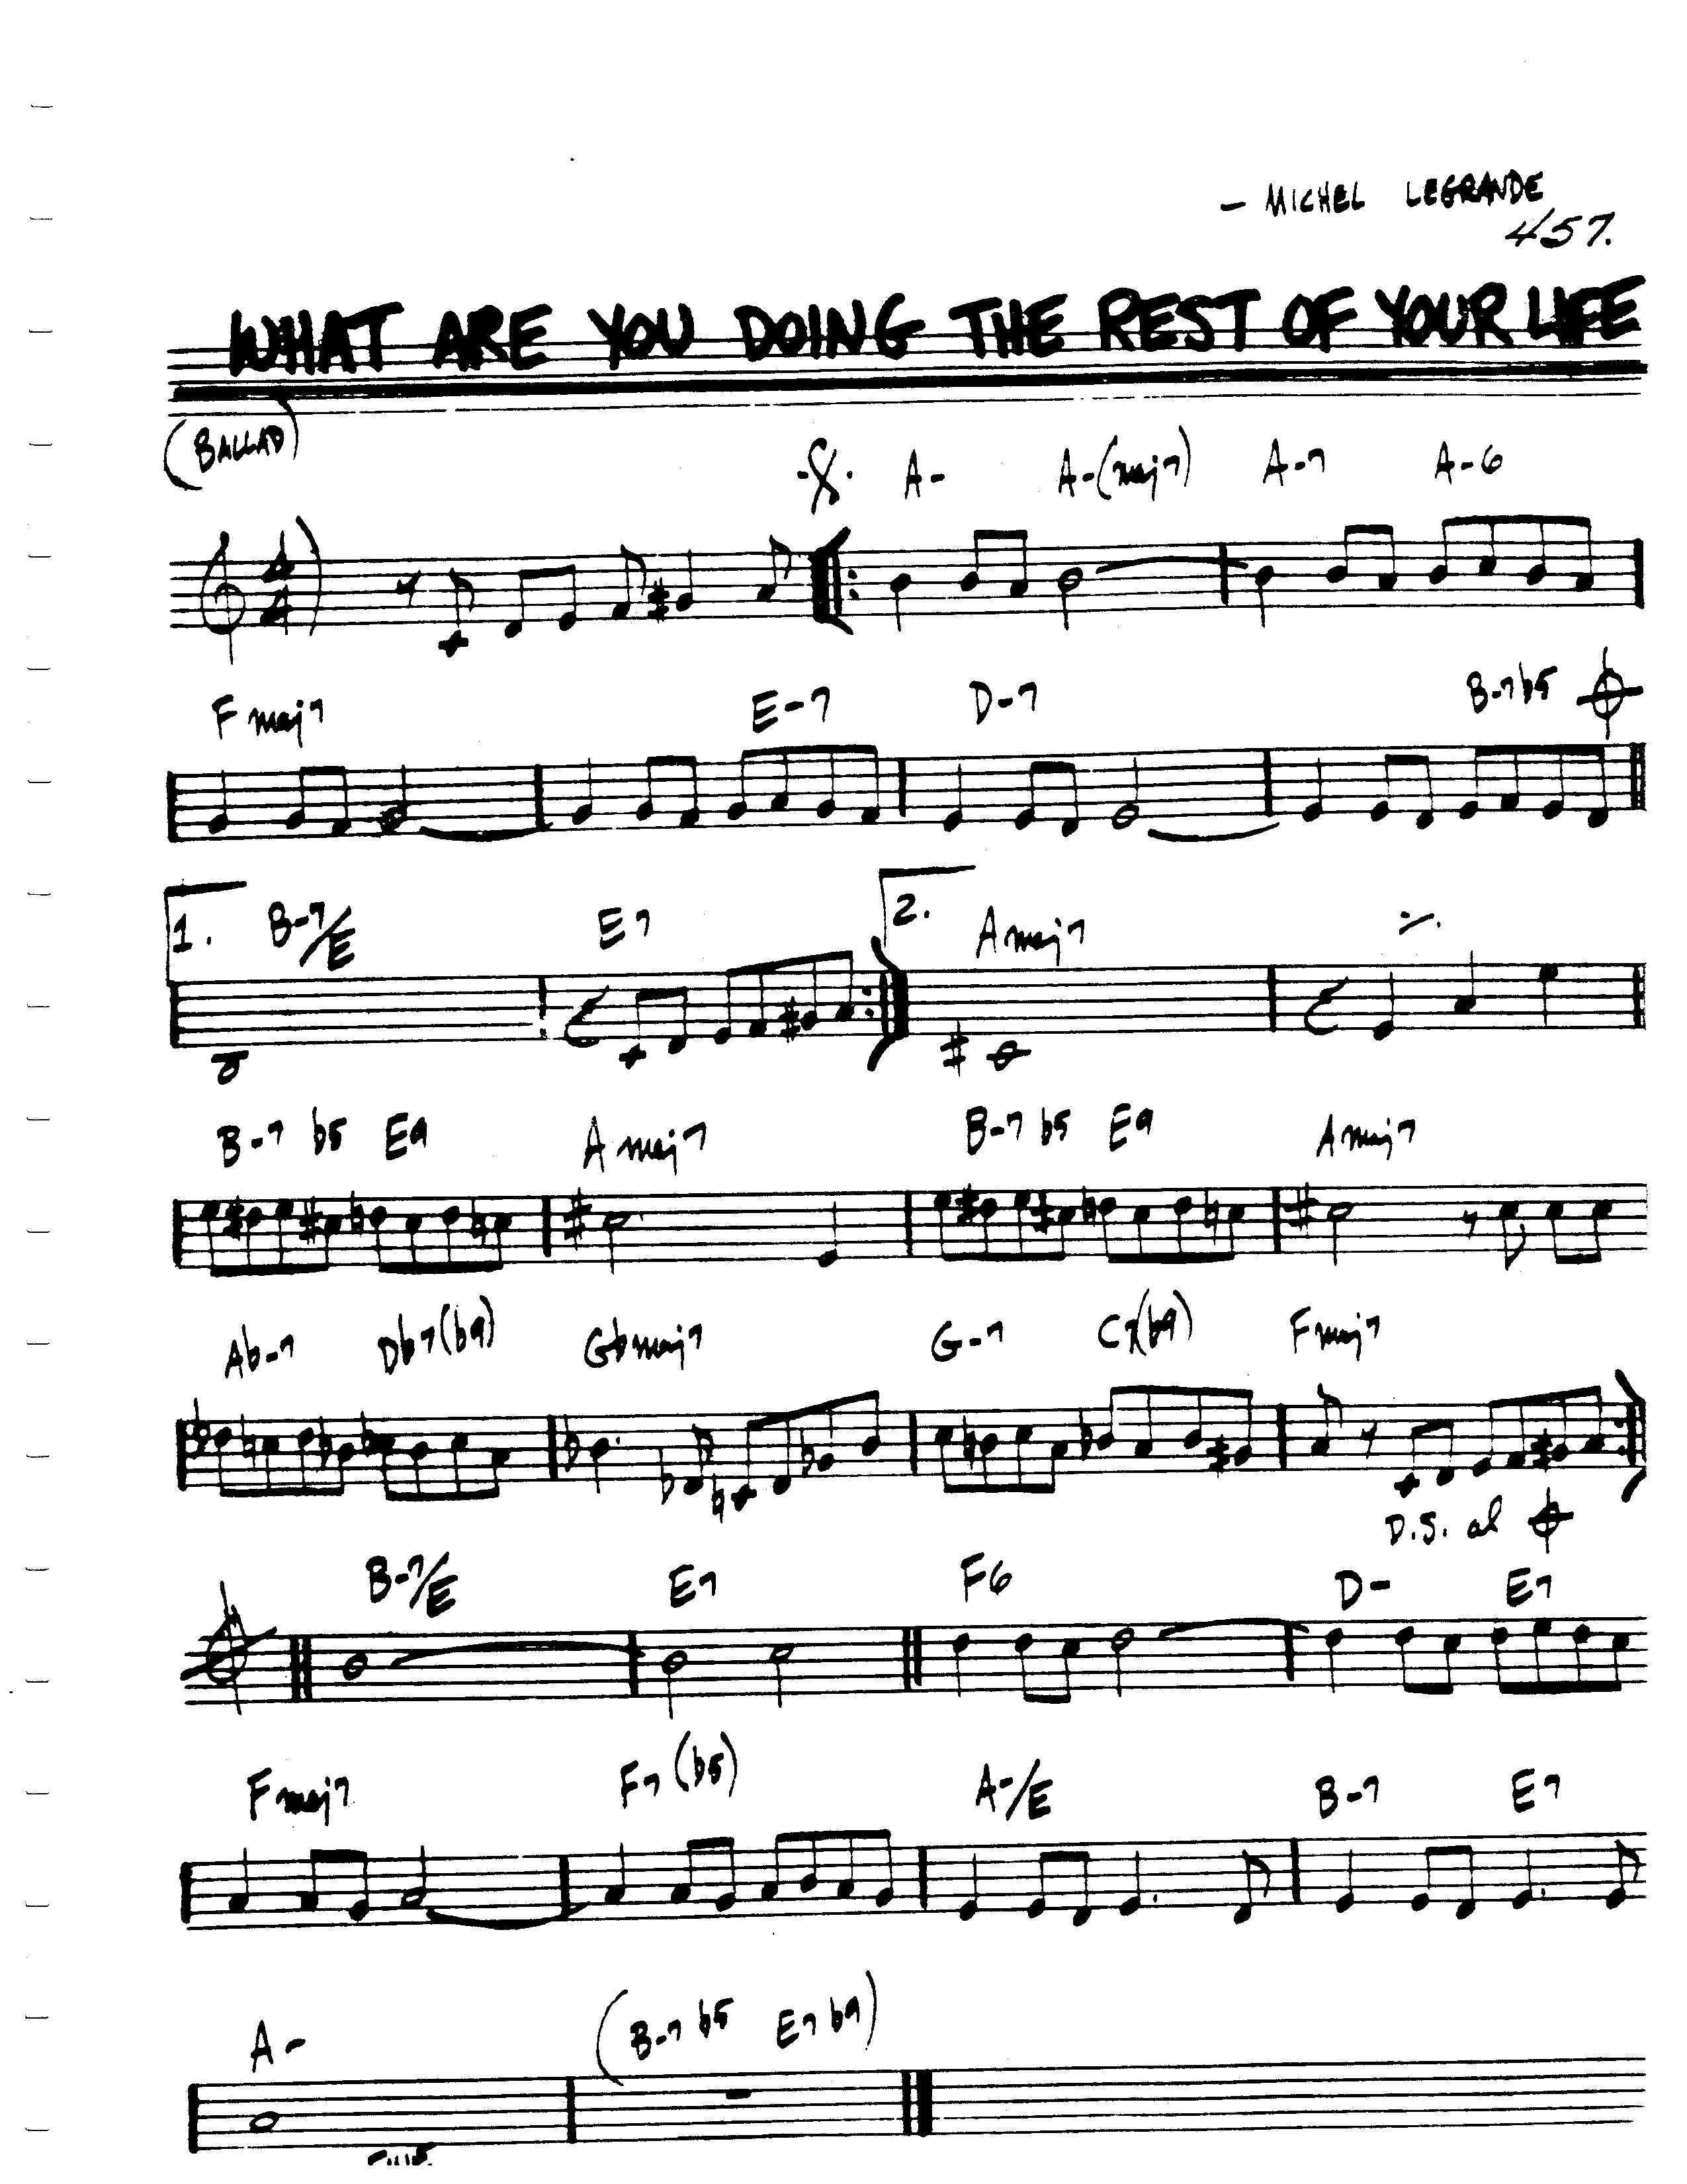 - MICHEL LEGRANDE
457.
WHAT ARE YOU DOING THE REST OF YOUR LIFE
(BALLAD)
A- A-(maj7) A-7 A-6
4
4
Fmaj7 E-7 D-7 B-7b5
1. B-7/E E7 2. Amaj7
B-7 b5 E9 Amaj7 B-7 b5 E9 Amaj7
Ab-7 Db7(b9) Gbmaj7 G-7 C7(b9) Fmaj7
D.S. al
B-7/E E7 F6 D- E7
Fmaj7 F7(b5) A-/E B-7 E7
A- (B-7 b5 E7 b9)